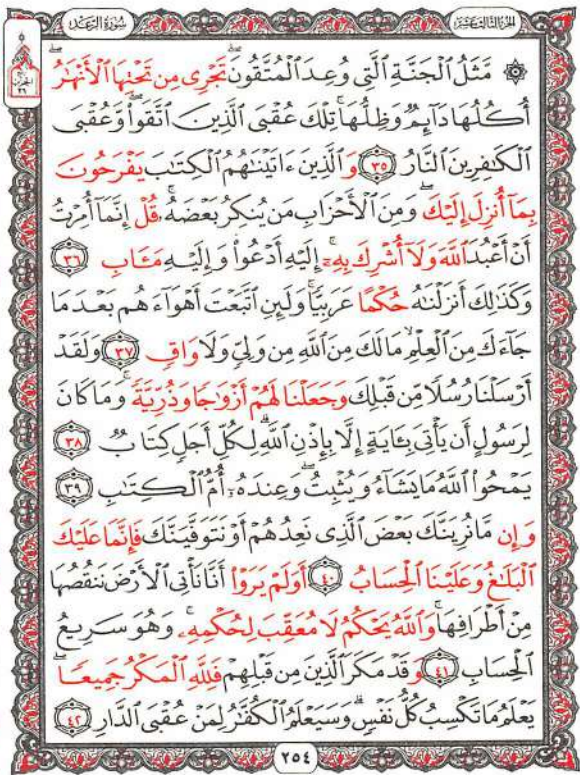 الجزء الثالث عشر
سورة الرعد
۞ مَّثَلُ ٱلْجَنَّةِ ٱلَّتِي وُعِدَ ٱلْمُتَّقُونَۖ تَجْرِى مِن تَحْتِهَا ٱلْأَنْهَٰرُۖ
أُكُلُهَا دَآئِمٌ وَظِلُّهَاۚ تِلْكَ عُقْبَى ٱلَّذِينَ ٱتَّقَوا۟ۖ وَّعُقْبَى
ٱلْكَٰفِرِينَ ٱلنَّارُ ٣٥ وَٱلَّذِينَ ءَاتَيْنَٰهُمُ ٱلْكِتَٰبَ يَفْرَحُونَ
بِمَآ أُنزِلَ إِلَيْكَۖ وَمِنَ ٱلْأَحْزَابِ مَن يُنكِرُ بَعْضَهُۥۚ قُلْ إِنَّمَآ أُمِرْتُ
أَنْ أَعْبُدَ ٱللَّهَ وَلَآ أُشْرِكَ بِهِۦٓۚ إِلَيْهِ أَدْعُوا۟ وَإِلَيْهِ مَـَٔابِ ٣٦
وَكَذَٰلِكَ أَنزَلْنَٰهُ حُكْمًا عَرَبِيًّاۚ وَلَئِنِ ٱتَّبَعْتَ أَهْوَآءَهُم بَعْدَ مَا
جَآءَكَ مِنَ ٱلْعِلْمِ مَا لَكَ مِنَ ٱللَّهِ مِن وَلِيٍّ وَلَا وَاقٍ ٣٧ وَلَقَدْ
أَرْسَلْنَا رُسُلًا مِّن قَبْلِكَ وَجَعَلْنَا لَهُمْ أَزْوَٰجًا وَذُرِّيَّةًۚ وَمَا كَانَ
لِرَسُولٍ أَن يَأْتِىَ بِـَٔايَةٍ إِلَّا بِإِذْنِ ٱللَّهِۗ لِكُلِّ أَجَلٍ كِتَابٌ ٣٨
يَمْحُوا۟ ٱللَّهُ مَا يَشَآءُ وَيُثْبِتُۖ وَعِندَهُۥٓ أُمُّ ٱلْكِتَٰبِ ٣٩
وَإِن مَّا نُرِيَنَّكَ بَعْضَ ٱلَّذِى نَعِدُهُمْ أَوْ نَتَوَفَّيَنَّكَ فَإِنَّمَا عَلَيْكَ
ٱلْبَلَٰغُ وَعَلَيْنَا ٱلْحِسَابُ ٤٠ أَوَلَمْ يَرَوْا۟ أَنَّا نَأْتِى ٱلْأَرْضَ نَنقُصُهَا
مِنْ أَطْرَافِهَاۚ وَٱللَّهُ يَحْكُمُ لَا مُعَقِّبَ لِحُكْمِهِۦۚ وَهُوَ سَرِيعُ
ٱلْحِسَابِ ٤١ وَقَدْ مَكَرَ ٱلَّذِينَ مِن قَبْلِهِمْ فَلِلَّهِ ٱلْمَكْرُ جَمِيعًاۖ
يَعْلَمُ مَا تَكْسِبُ كُلُّ نَفْسٍۗ وَسَيَعْلَمُ ٱلْكُفَّٰرُ لِمَنْ عُقْبَى ٱلدَّارِ ٤٢
٢٥٤